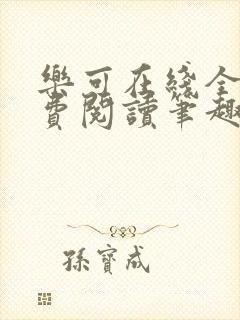 樂可在綫全
費閱讀筆趣
孫寶成